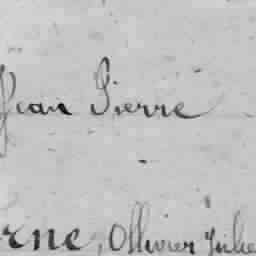 Jean Pierre
rne, Ollivier Jule